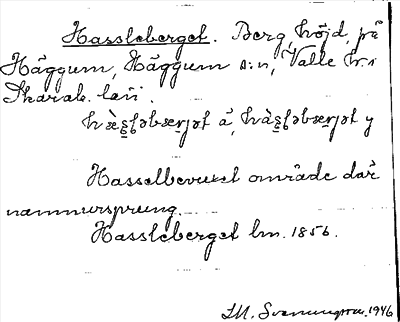 Hassleberget. Berg, höjd, på
Häggum, Häggum s:n, Valle hd i
Skarab. län.
hàs̱ləbærjət ä, hàs̱ləbærjət y
Hasselbevuxet område där
namnursprung.
Hassleberget lm. 1856.
I.M. Svenungsson 1946